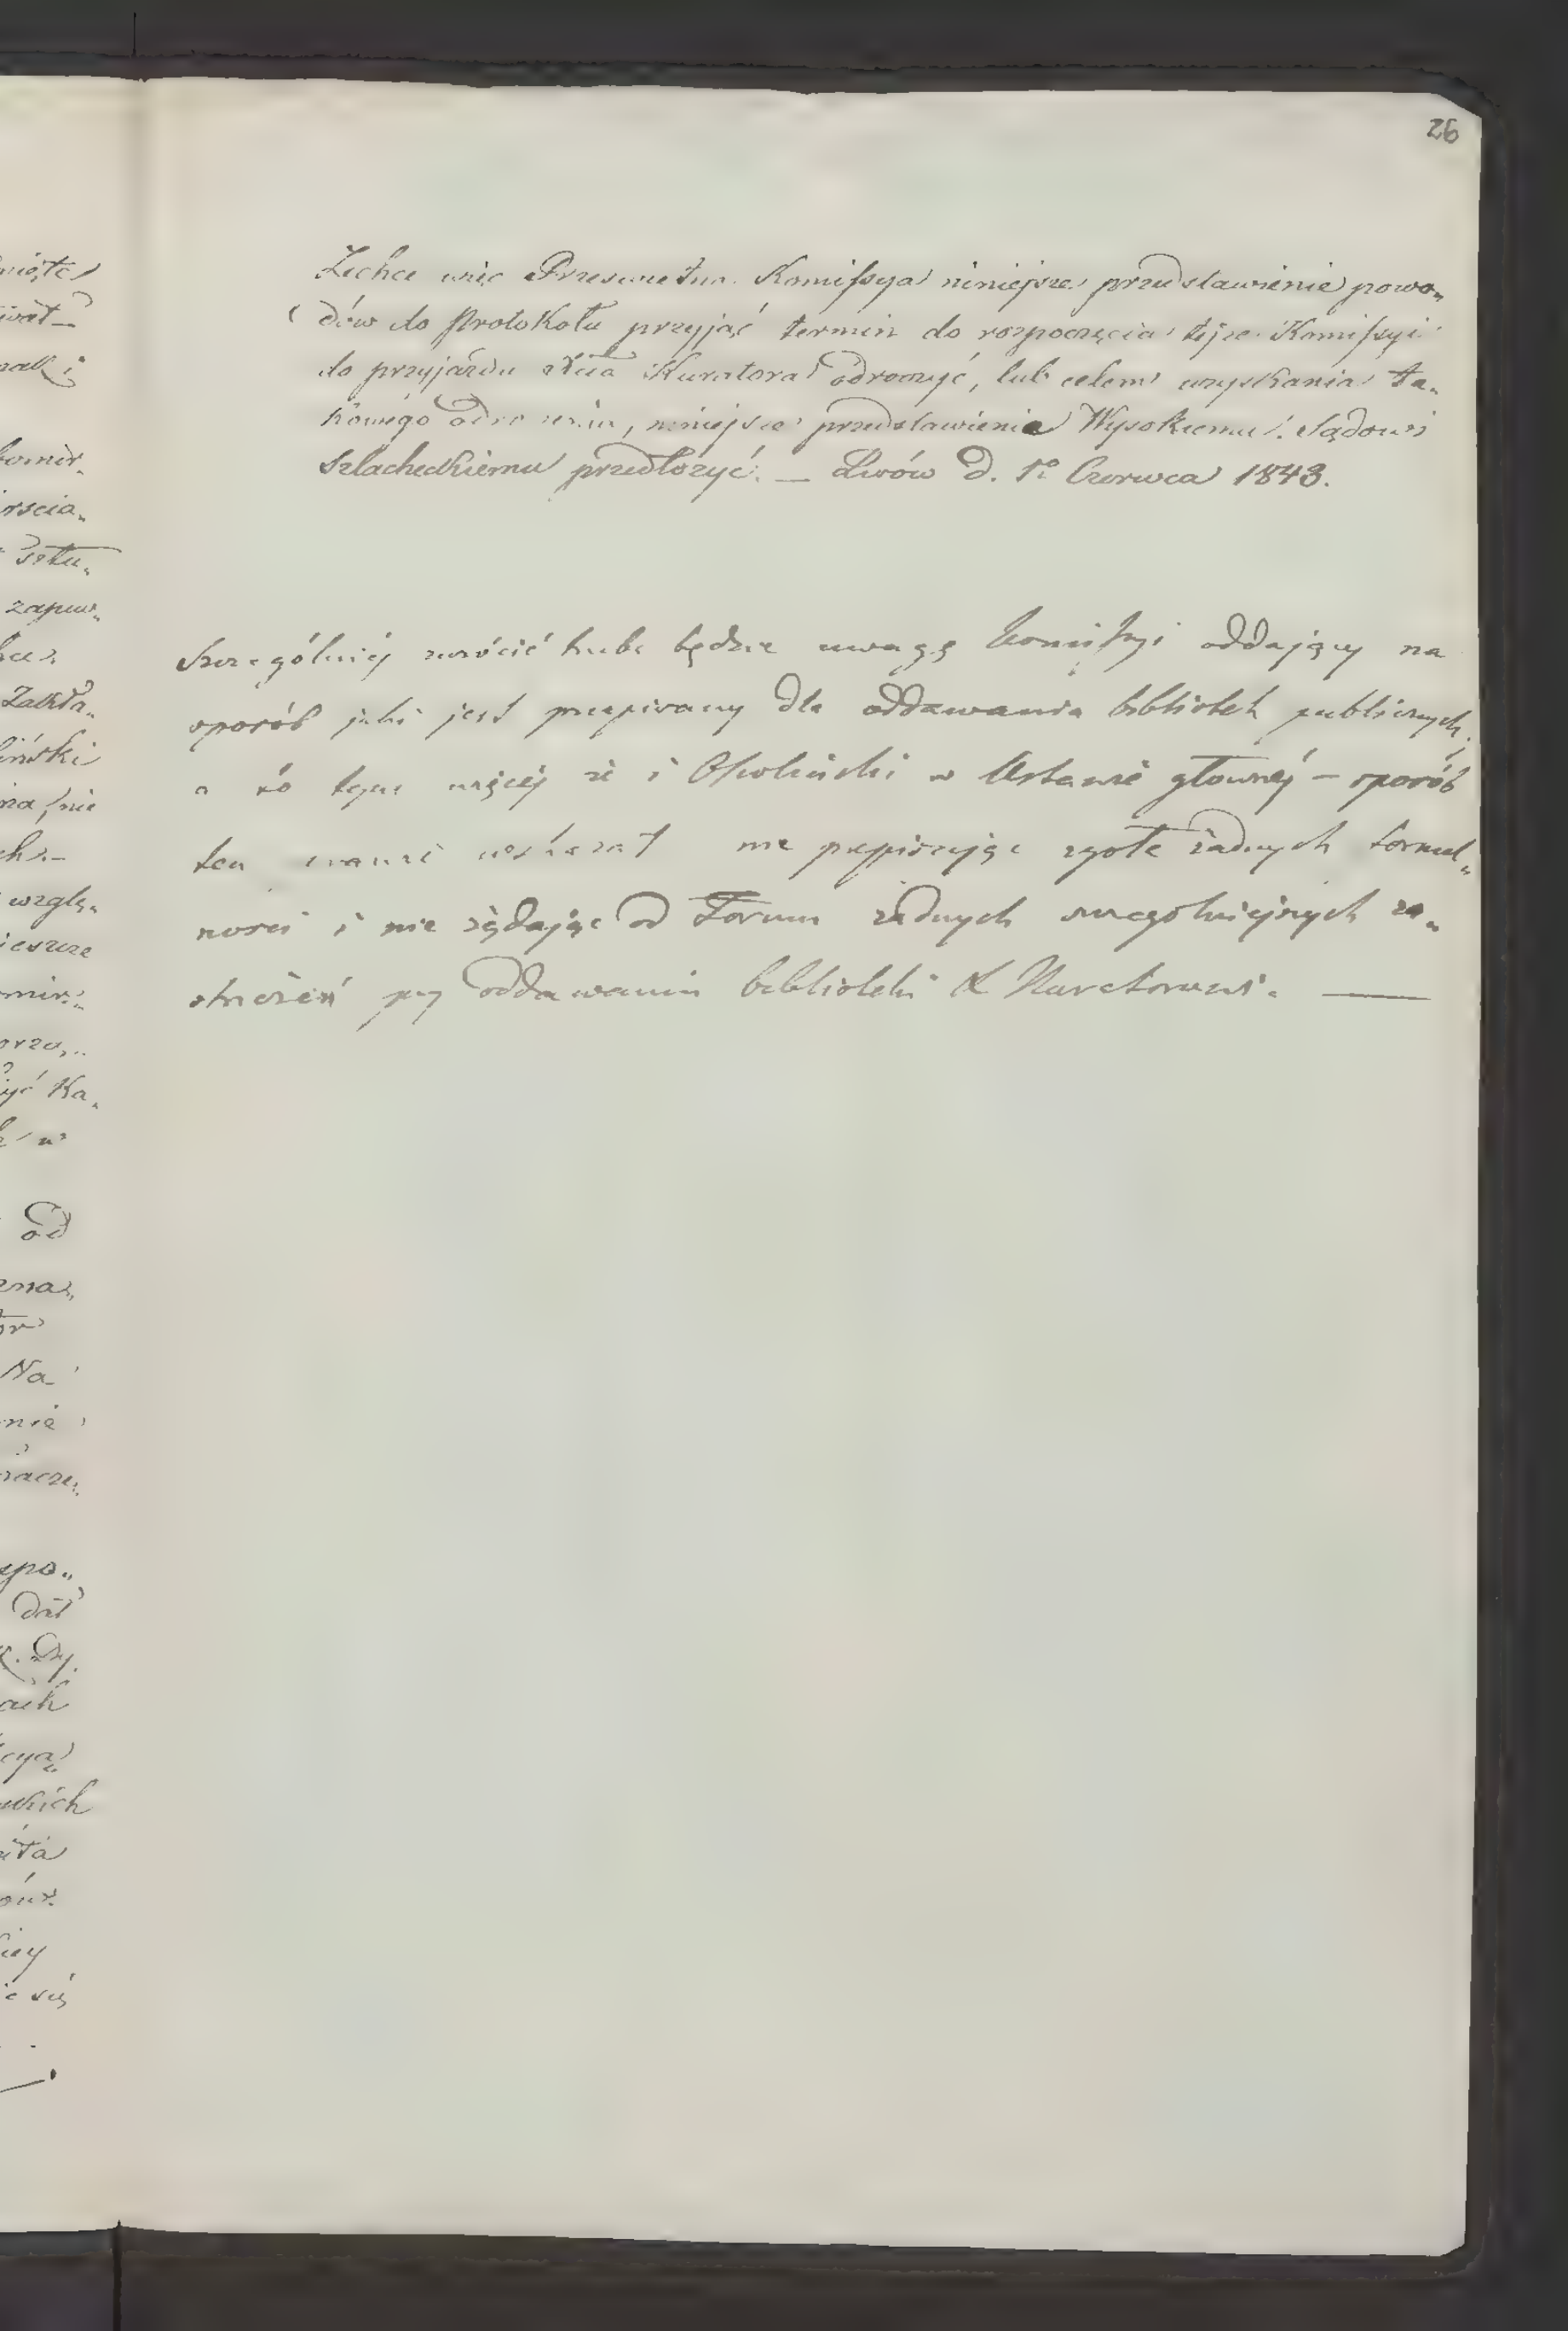 26
Zechce więc Prześwietna Komissya niniejsze przedstawienie powo„
dów do protokołu przyjąć termin do rozpoczęcia tejże Komissyi
do przyjazdu Kuratora odroczyć, lub celem uzyskania ta„
kowego odroczenia, niniejsze przedstawienie Wysokiemu Sądowi
szlacheckiemu przedłożyć. — Lwów d. 1º Czerwca 1843.
Szczególniej zwrócić trzeba będzie uwagę Komissyi oddający na
sposób jaki jest przepisany dla oddawania bibliotek publicznych,
a to tym więcej że i Ossoliński w Ustawie głównej — sposób
ten wskazał nie przepisując zgoła żadnych formal„
ności i nie żądając od Forum żadnych szczególniejszych za„
strzeżeń przy oddawaniu biblioteki Kuratorowi. —
niąte
wat
omir.
ścia„
sztu„
zapew„
Zakła„
liński
na, nie
ch.—
wzglę„
ieszcze
mir.
orzo„
yć Ka„
w
od
zna„
Na
nie
racze„
spo„
dał
Dy.
cya
kich
ita
ey
się